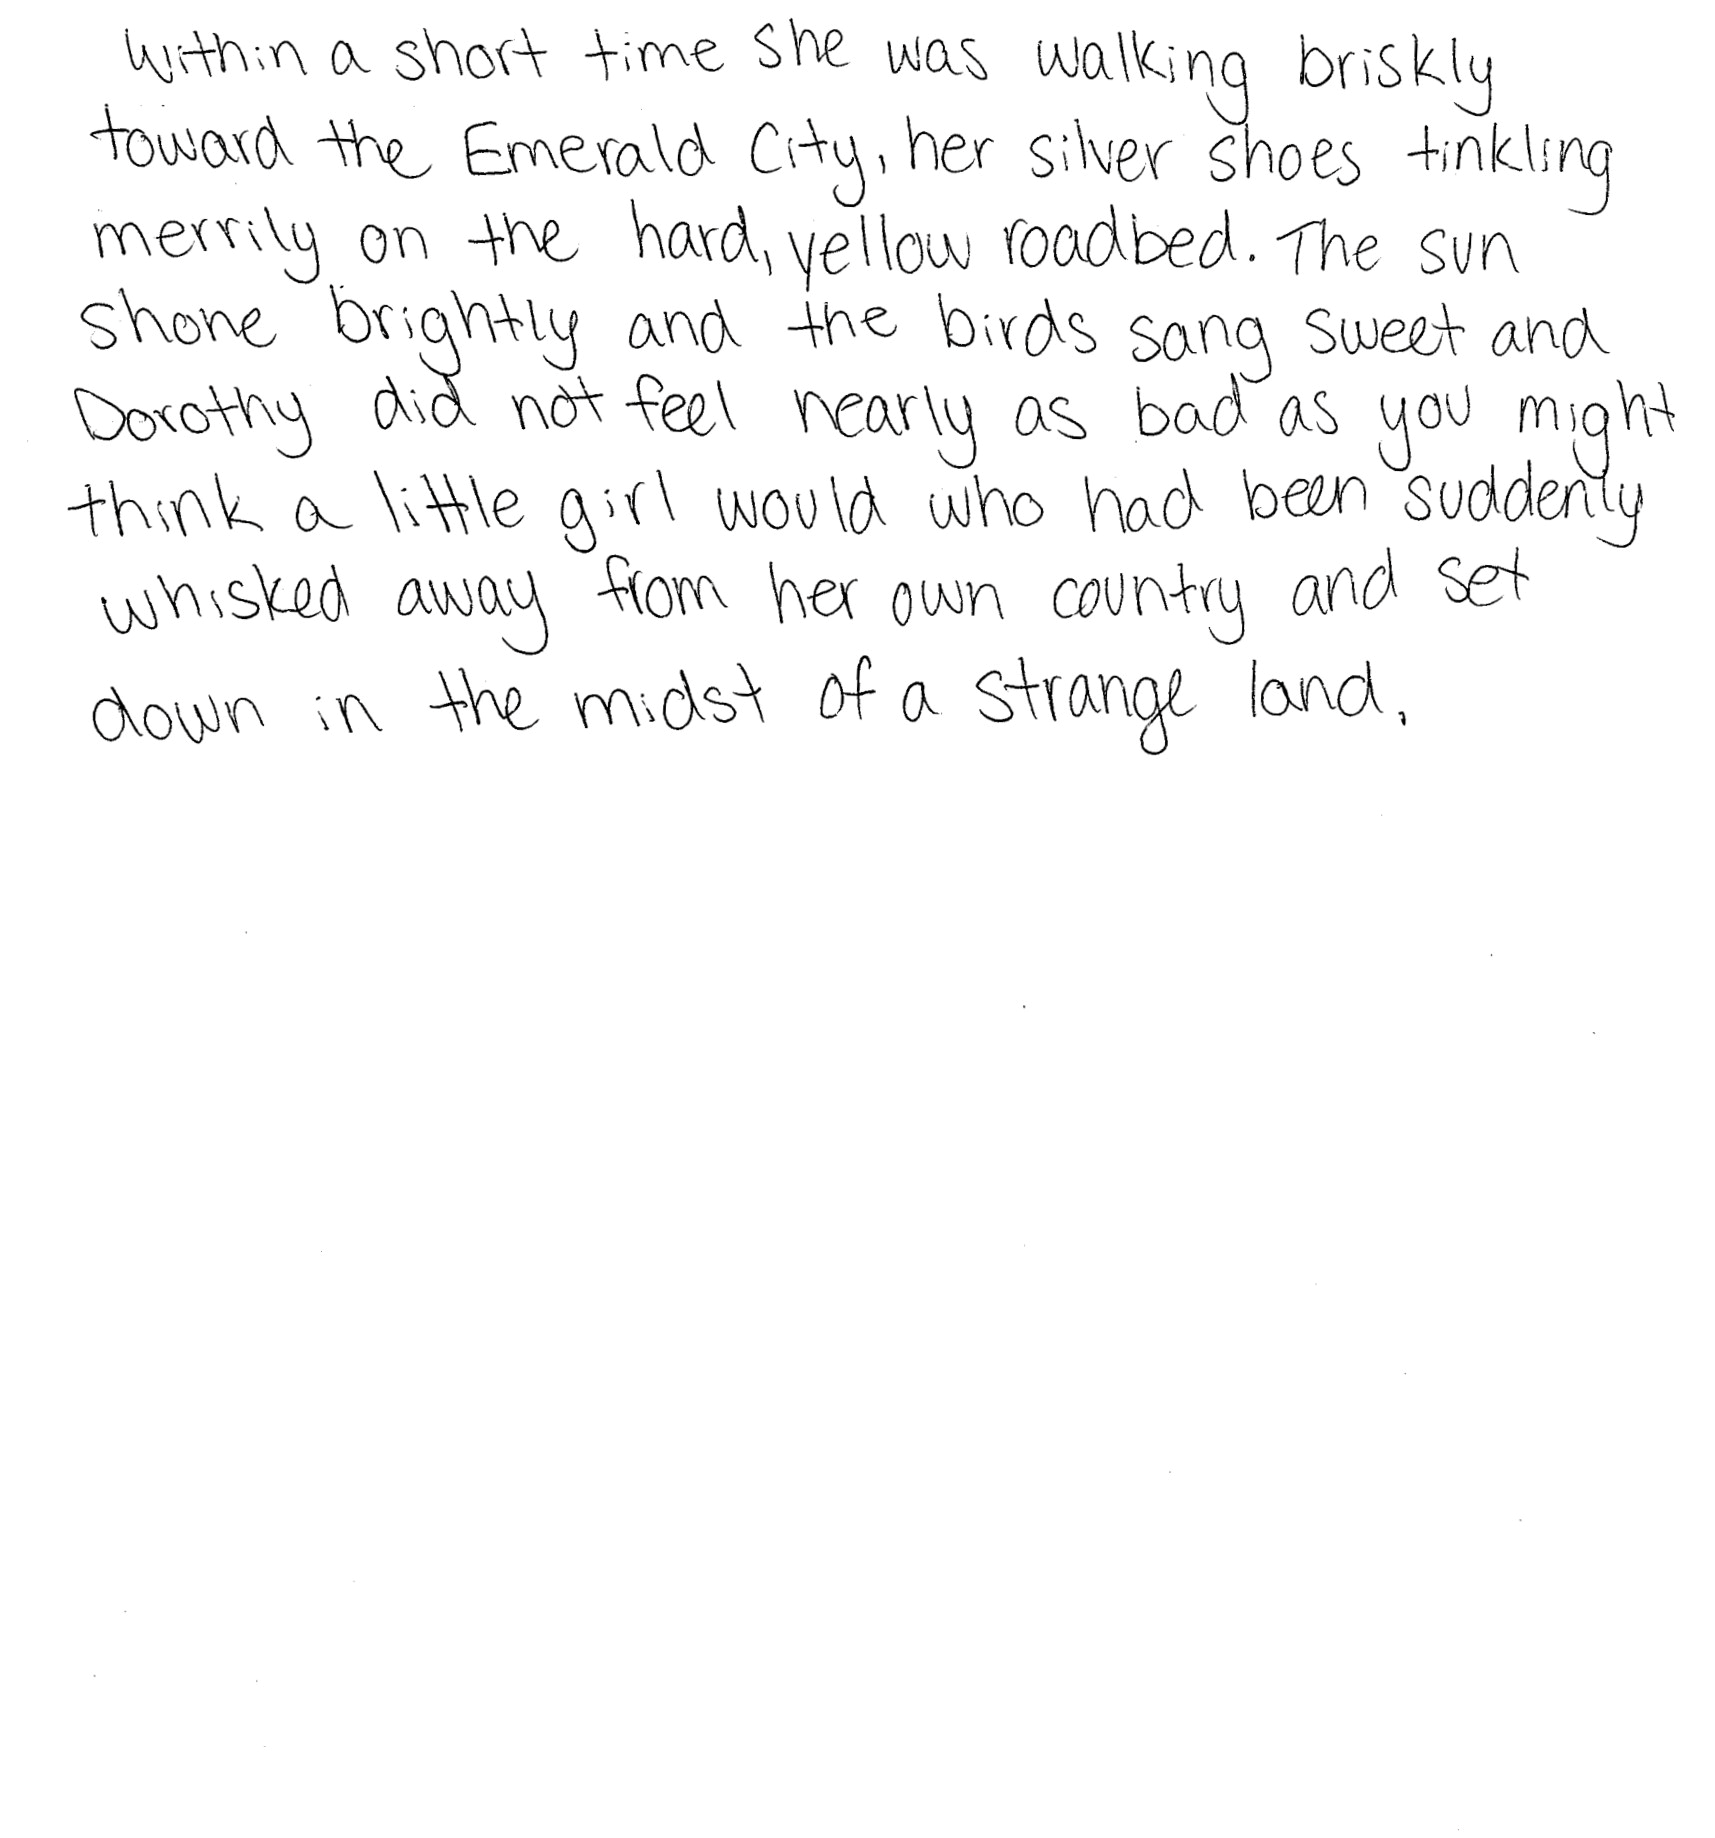 Within a short time she was walking briskly
toward the Emerald City, her silver shoes tinkling
merrily on the hard, yellow roadbed. The sun
shone brightly and the birds sang sweet and
Dorothy did not feel nearly as bad as you might
think a little girl would who had been suddenly
whisked away from her own country and set
down in the midst of a strange land.